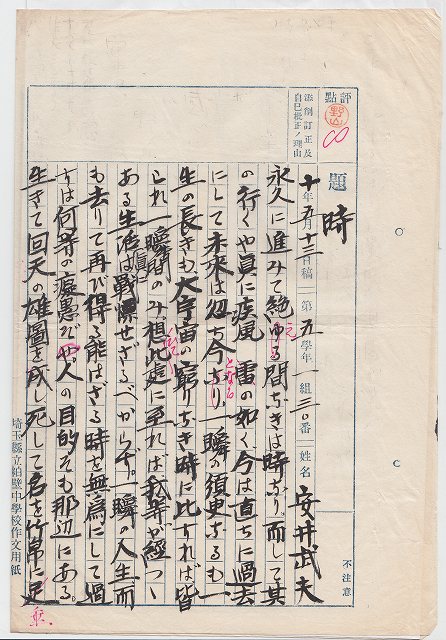 評點
野山
8
添削訂正及
自己檢正ノ理由
題
時
十年五月十三日稿 第五學年一組三〇番 姓名 安井武夫
不注意
永久に進みて絶ゆる間なきは時なり。而して其
え
の行くや眞に疾風 雷の如く、今は直ちに過去
にして未來は忽ち今なり。一瞬の須臾なるも一
となる
生の長きも大宇宙の窮りなき時に比すれば皆
られ一瞬間のみ想此處に至れば我等が經つゝ
ある生活眞に戰慄せざるべからず。一瞬の人生而
も去りて再び得る能はざる時を無爲にして過
すは何等の痴愚ぞや人の目的そも那辺にある。
生きて回天の雄圖を成し死して名を竹帛に
垂
埼玉縣立粕壁中學校作文用紙